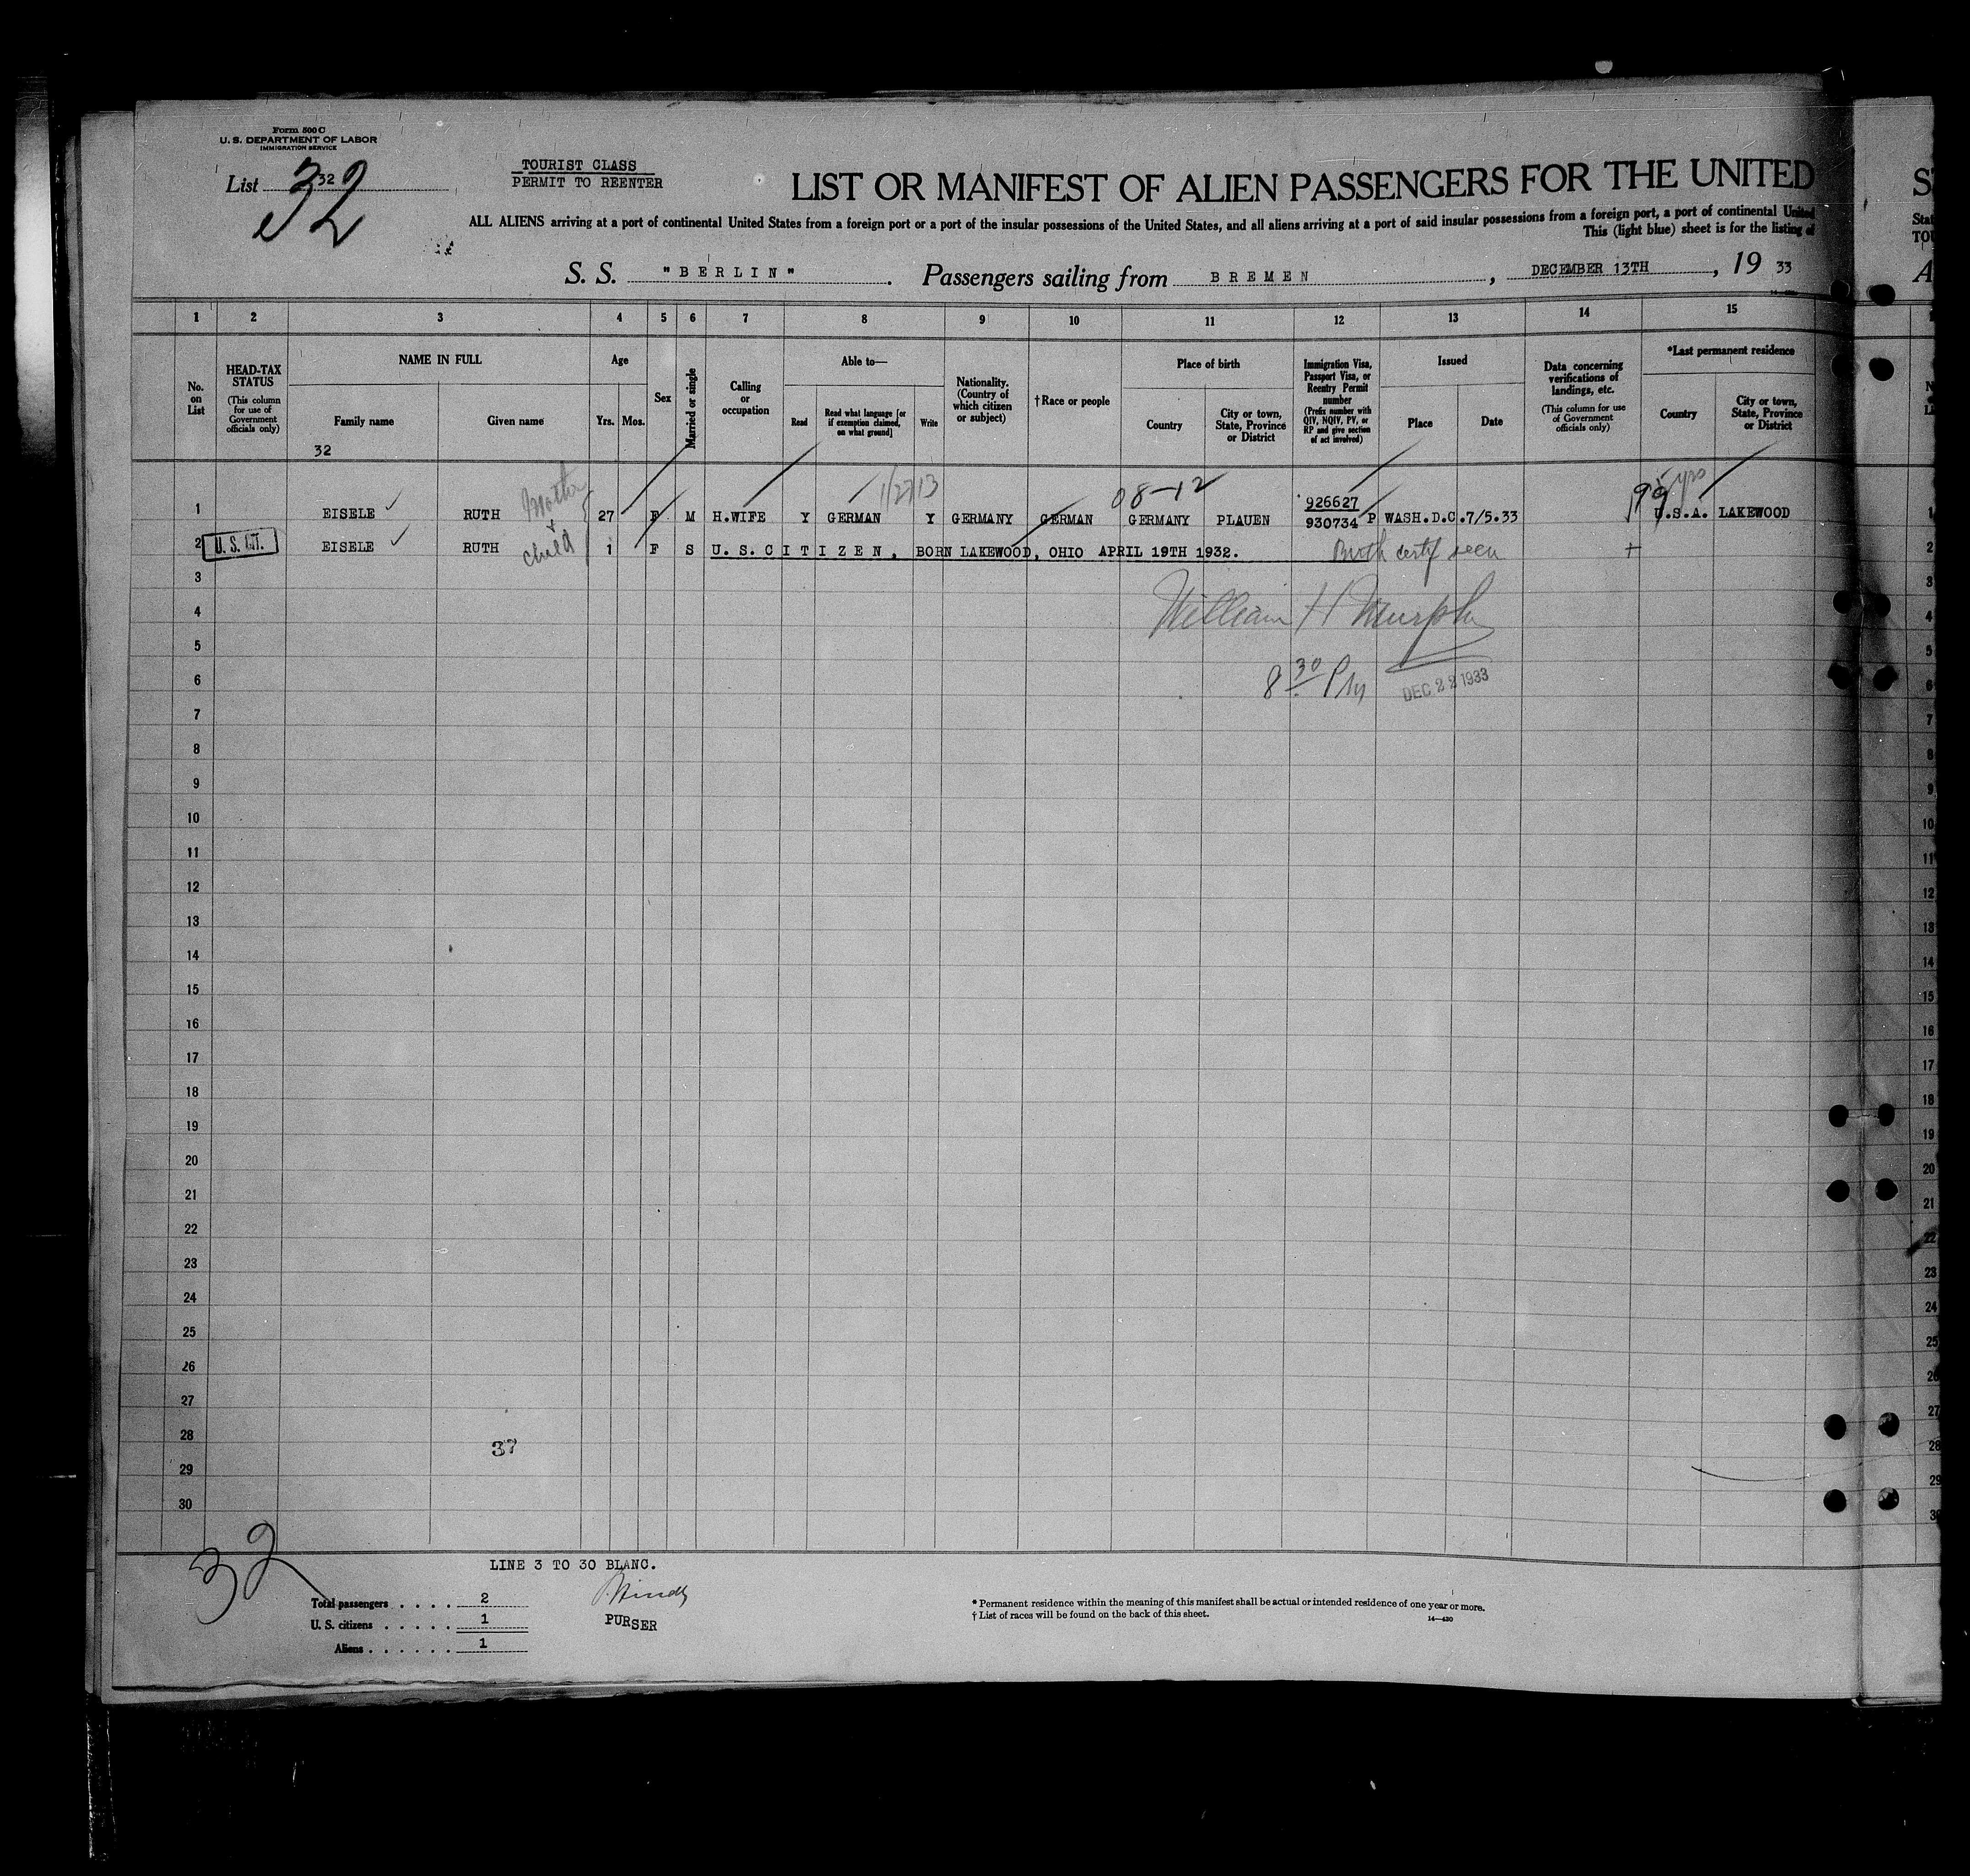 Form 500 C
U. S. DEPARTMENT OF LABOR
IMMIGRATION SERVICE
List 32
32
TOURIST CLASS
PERMIT TO REENTER
LIST OR MANIFEST OF ALIEN PASSENGERS FOR THE UNITED
ALL ALIENS arriving at a port of continental United States from a foreign port or a port of the insular possessions of the United States, and all aliens arriving at a port of said insular possessions from a foreign port, a port of continental United
This (light blue) sheet is for the listing of
S. S. "BERLIN". Passengers sailing from BREMEN, DECEMBER 13TH, 19 33
1 2 3 4 5 6 7 8 9 10 11 12 13 14 15
No. on List
HEAD-TAX STATUS (This column for use of Government officials only)
NAME IN FULL
Family name
Given name
32
Age
Yrs. Mos.
Sex
Married or single
Calling or occupation
Able to—
Read
Read what language [or if exemption claimed, on what ground]
Write
Nationality. (Country of which citizen or subject)
†Race or people
Place of birth
Country
City or town, State, Province or District
Immigration Visa, Passport Visa, or Reentry Permit number (Prefix number with QIV, NQIV, PV, or RP and give section of act involved)
Issued
Place
Date
Data concerning verifications of landings, etc. (This column for use of Government officials only)
*Last permanent residence
Country
City or town, State, Province or District
Mother
1/27/13
08-12
99
yrs
926627
1 EISELE RUTH 27 F M H.WIFE Y GERMAN Y GERMANY GERMAN GERMANY PLAUEN 930734 P WASH.D.C.7/5.33 U.S.A. LAKEWOOD
2 U. S. CIT. EISELE RUTH child 1 F S U.S.CITIZEN, BORN LAKEWOOD, OHIO APRIL 19TH 1932. Birth certif seen
3
4 William H Murphy
5
6 8 30 PM DEC 22 1933
7
8
9
10
11
12
13
14
15
16
17
18
19
20
21
22
23
24
25
26
27
28 37
29
30
32
LINE 3 TO 30 BLANC.
Total passengers . . . . 2
U. S. citizens . . . . . 1
Aliens . . . . . . 1
PURSER
* Permanent residence within the meaning of this manifest shall be actual or intended residence of one year or more.
† List of races will be found on the back of this sheet.
14—430